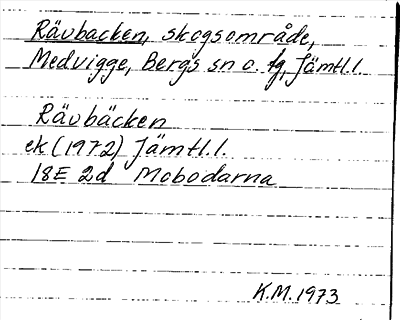 Rävbacken, skogsområde,
Medvigge, Bergs sn o. tg, Jämtl.l.
Rävbäcken
ek (1972) Jämtl.l.
18E 2d Mobodarna
K.M. 1973